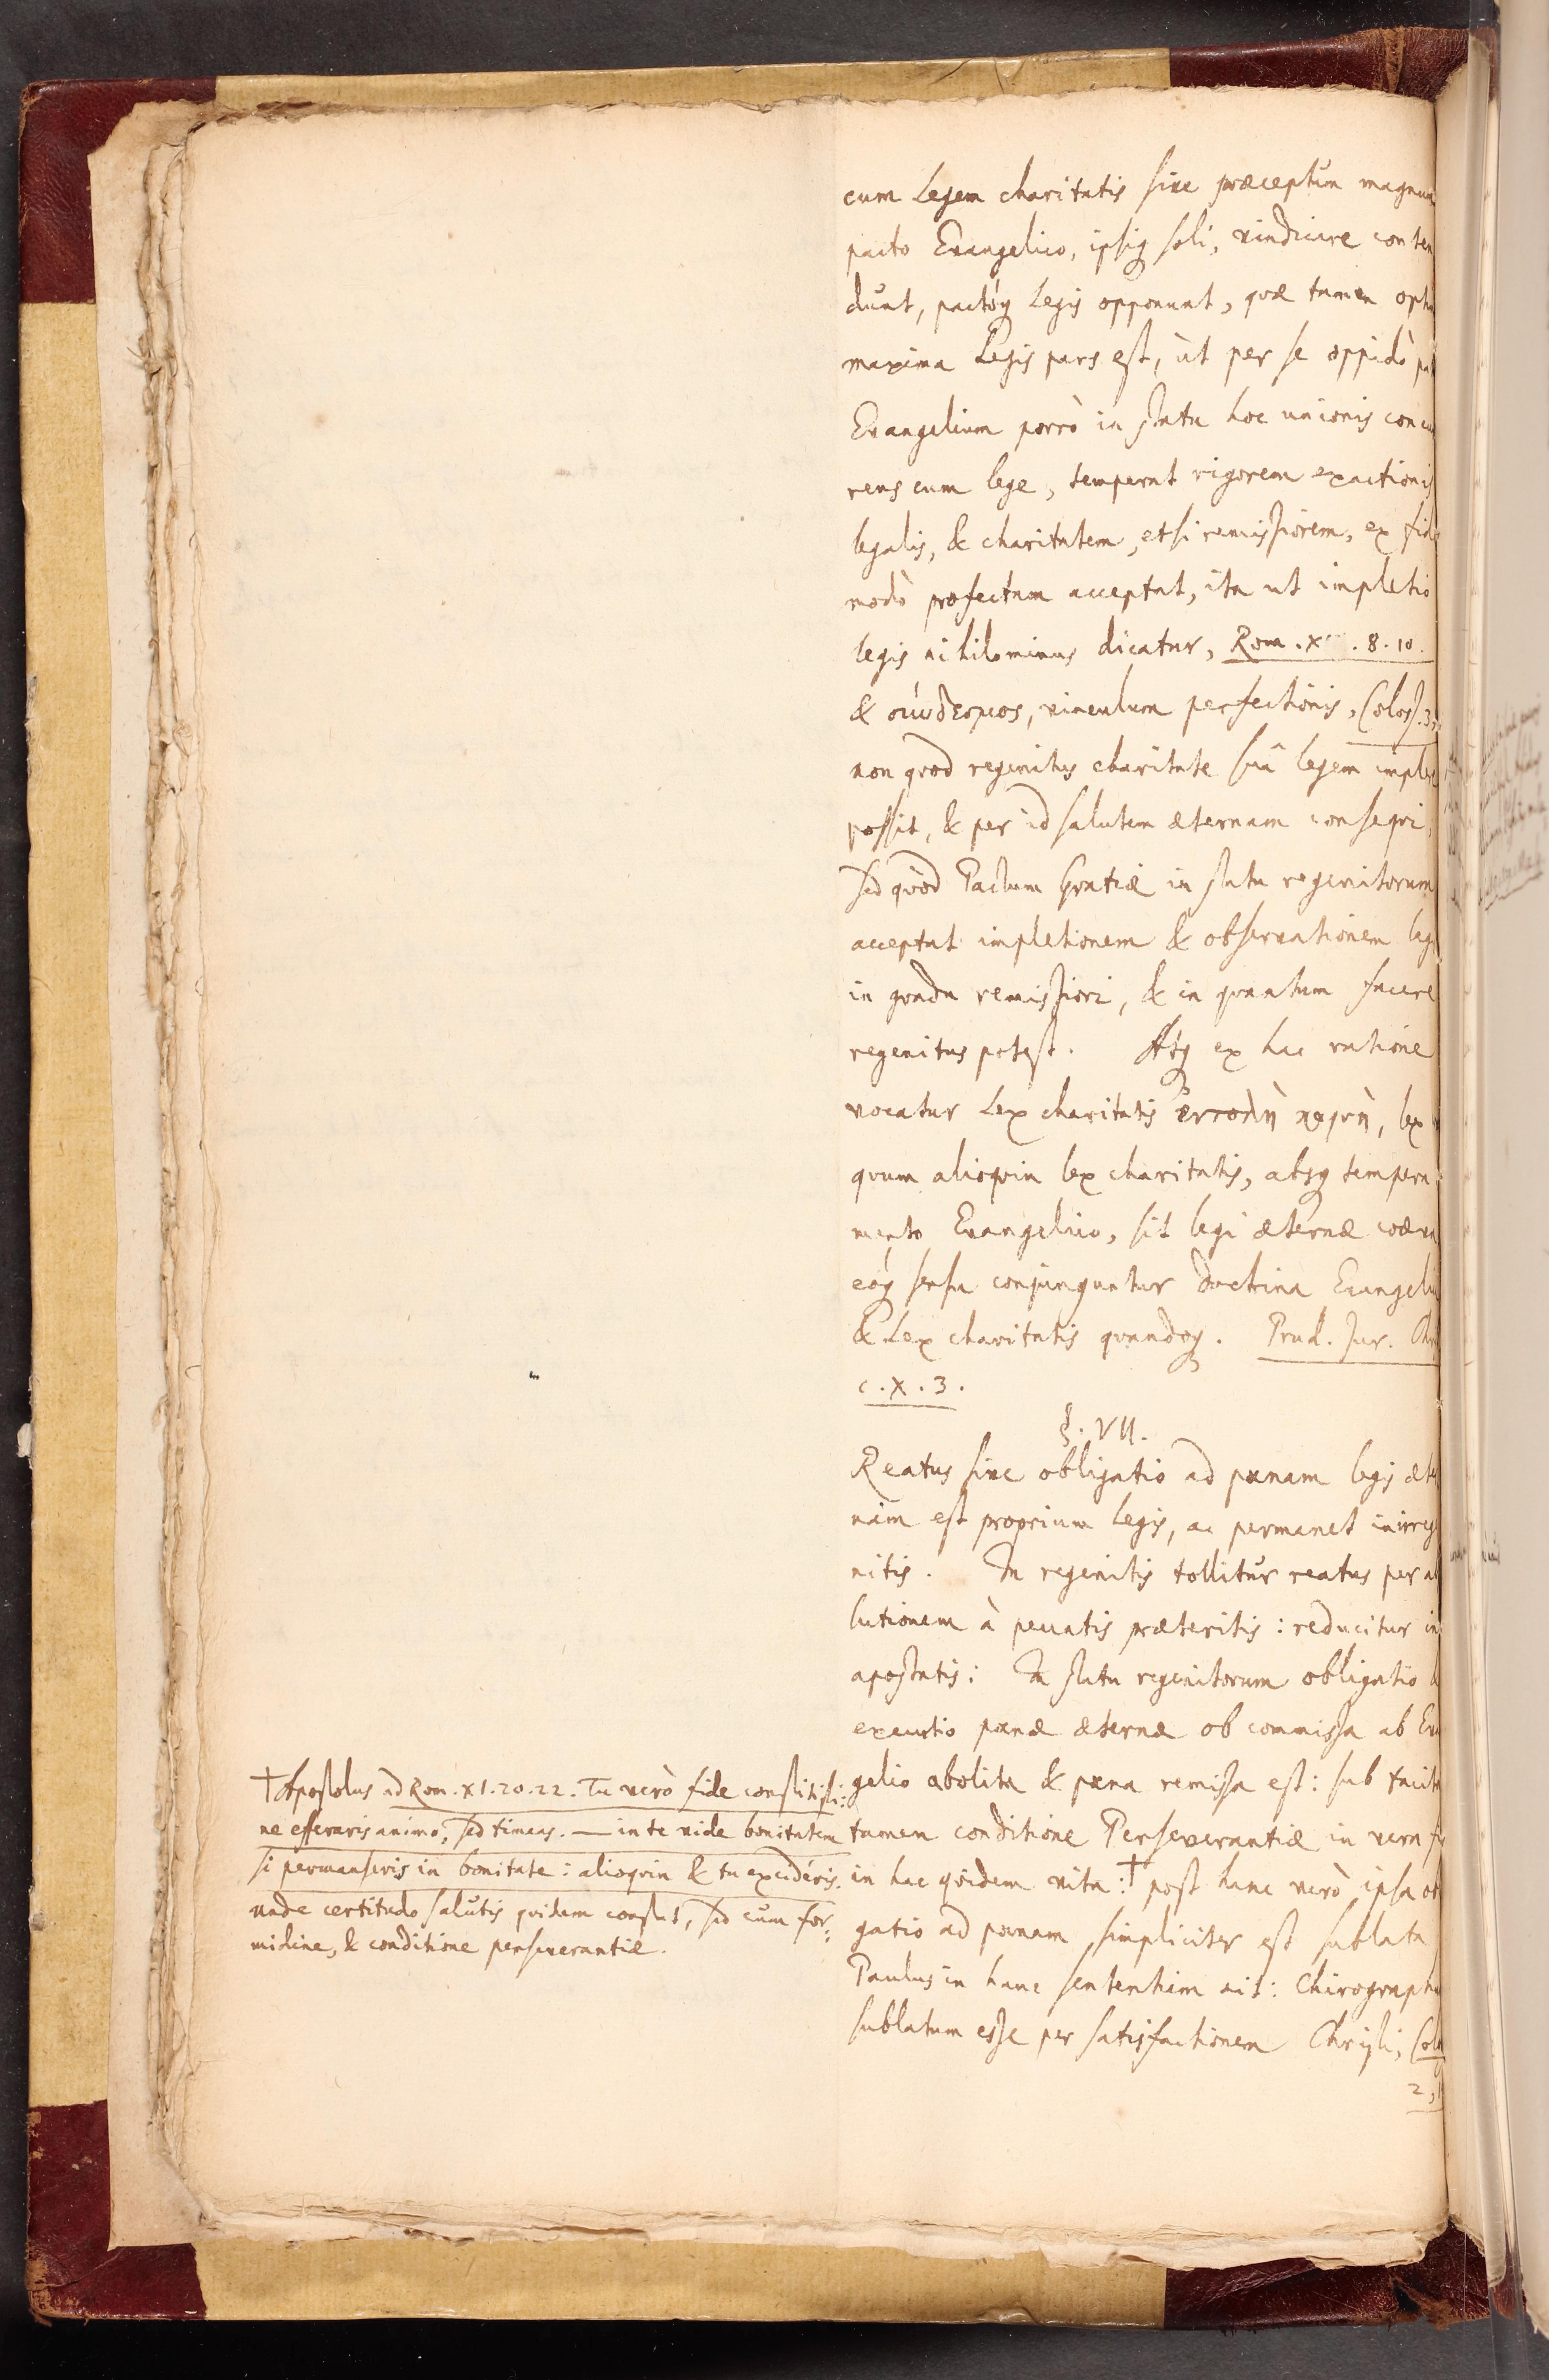 cum Legem charitatis sive præceptum magnum
pacto Evangelico, ipsiq soli, vindicare conten
dunt, pactóq Legis opponunt, quæ tamen
maxima Legis pars est, ùt per se oppidò
Evangelium porrò in statu hoc unionis concur
rens cum lege, temperat rigorem exactionis
legalis, & charitatem, etsi remissiorem, ex fide
modò profectam acceptat, ita ut impletio
legis nihilominus dicatur, Rom. . 8. 10.
& σύνδεσμος, vinculum perfectionis, Coloss. 3
non quod regenitus charitate suâ legem implere
possit, & per id salutem æternam consequi,
sed quòd Pactum Gratiæ in statu regenitorum
acceptat impletionem & observationem legis
in gradu remissiori, & in quantum facere
regenitus potest. Atq ex hac ratione
vocatur Lex charitatis ἐντολὴ καινὴ, lex
quum alioquin lex charitatis, absq tempera
mento Evangelico, sit legi æternæ coæva
eóq sensu conjunguntur doctrina Evangelii
& Lex charitatis quandoq. Prud. Jur.
c. X. 3.
§. VII.
Reatus sive obligatio ad pœnam legis æter
nam est proprium Legis, ac permanet in irrege
nitis. In regenitis tollitur reatus per ab
lutionem à peccatis præteritis: reducitur in
apostatis: In statu regenitorum obligatio
exactio pœnæ æternæ ob commissa ab Evan
gelio abolita & pœna remissa est: sub tacita
tamen conditione Perseverantiæ in vera
in hac quidem vita: † post hanc verò ipsa obli
gatio ad pœnam simpliciter est sublata
Paulus in hanc sententiam ait: Chirographum
sublatum esse per satisfactionem Christi, Colo
2,
† Apostolus ad Rom. XI. 20. 22. Tu verò fide constitisti:
ne efferaris animo, sed timeas. — in te vide bonitatem
si permanseris in bonitate: alioquin & tu excideris.
unde certitudo salutis quidem constat, sed cum for:
midine, & conditione perseverantiæ.